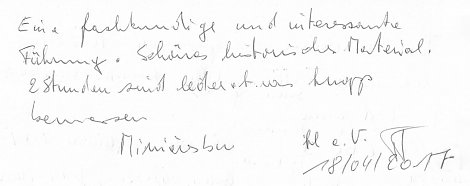 Eine fachkundige und interessante
Führung. Schönes historisches Material.
2 Stunden sind leider etwas knapp
bemessen
e.V.
18/04/2017